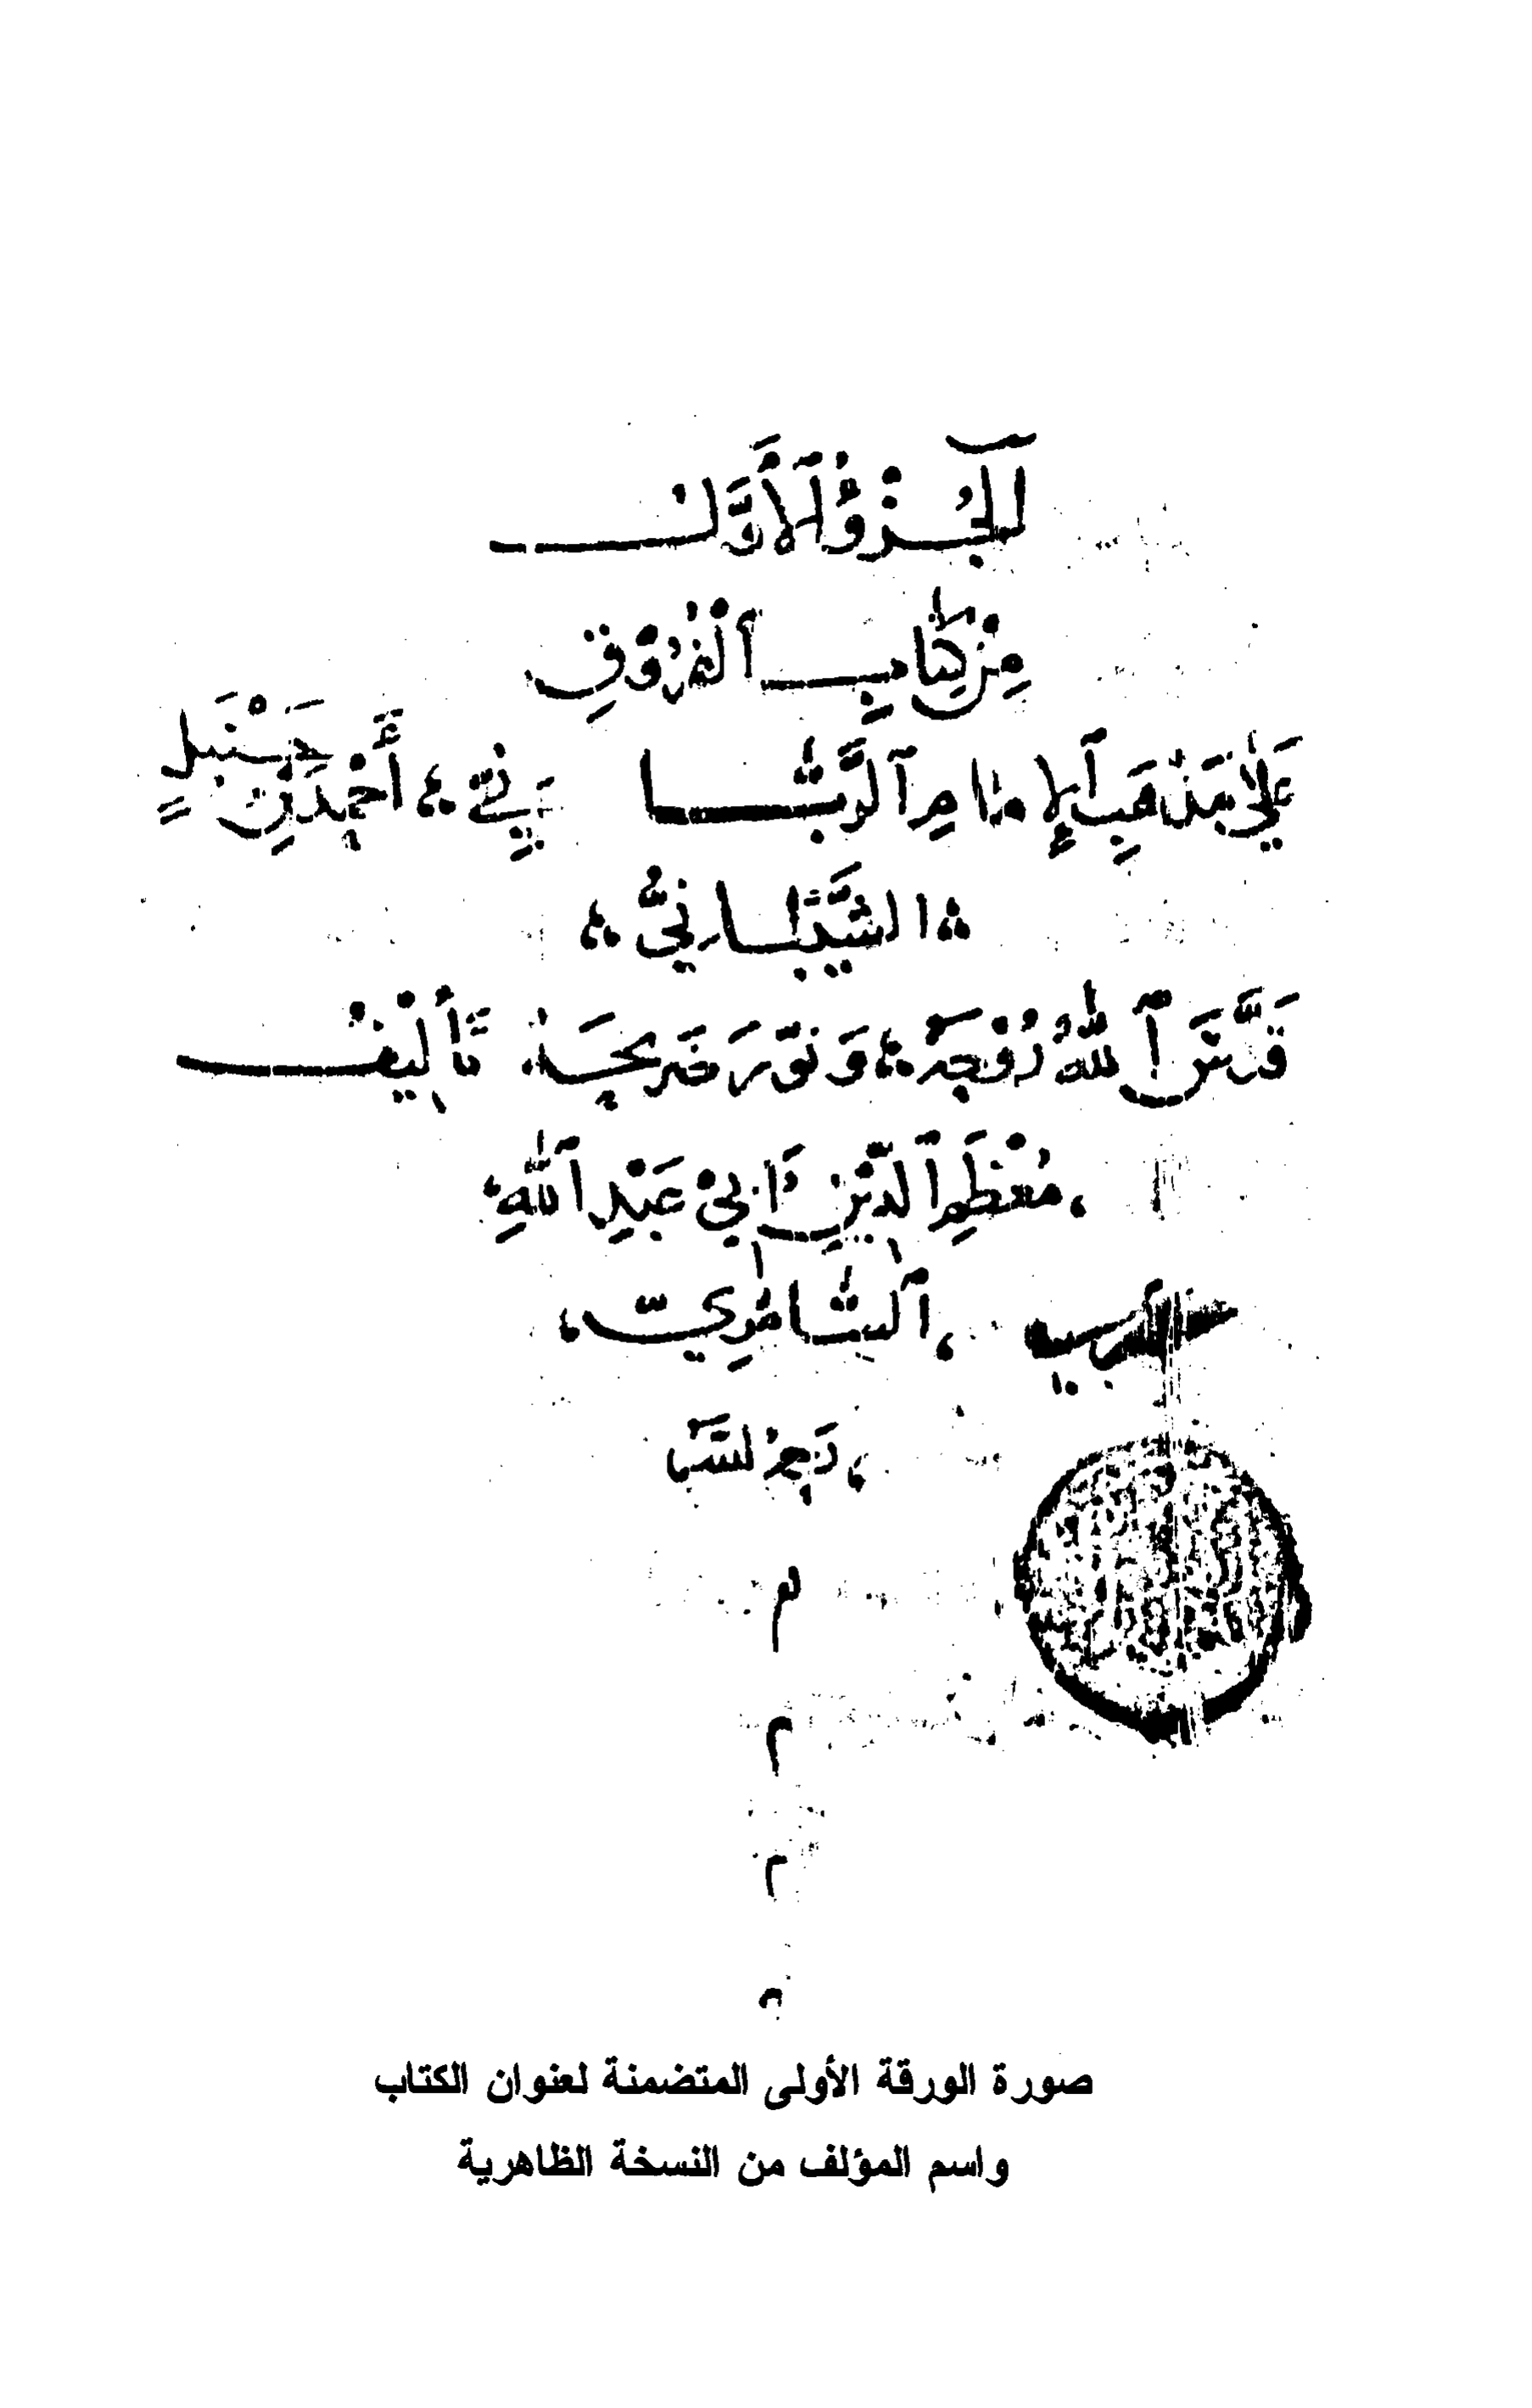 الجُزْؤُ الأَوَّلُ
مِنْ كِتَابِ الْفُرُوْقِ
عَلَى مَذْهَبِ الإِمَامِ الرَّبَّا نِيّ أَحْمَدَ بْنِ حَنْبَلٍ
الشَّيْبَانِيِّ
قَدَّسَ اللهُ رُوْحَهُ وَنَوَّرَ ضَرِيحَهُ تَأْلِيْفُ
مُعْظَمِ الدِّيْنِ أَبِيْ عَبْدِ اللهِ
السَّامُرِّيِّ
م
م
م
صورة الورقة الأولى المتضمنة لعنوان الكتاب
واسم المؤلف من النسخة الظاهرية